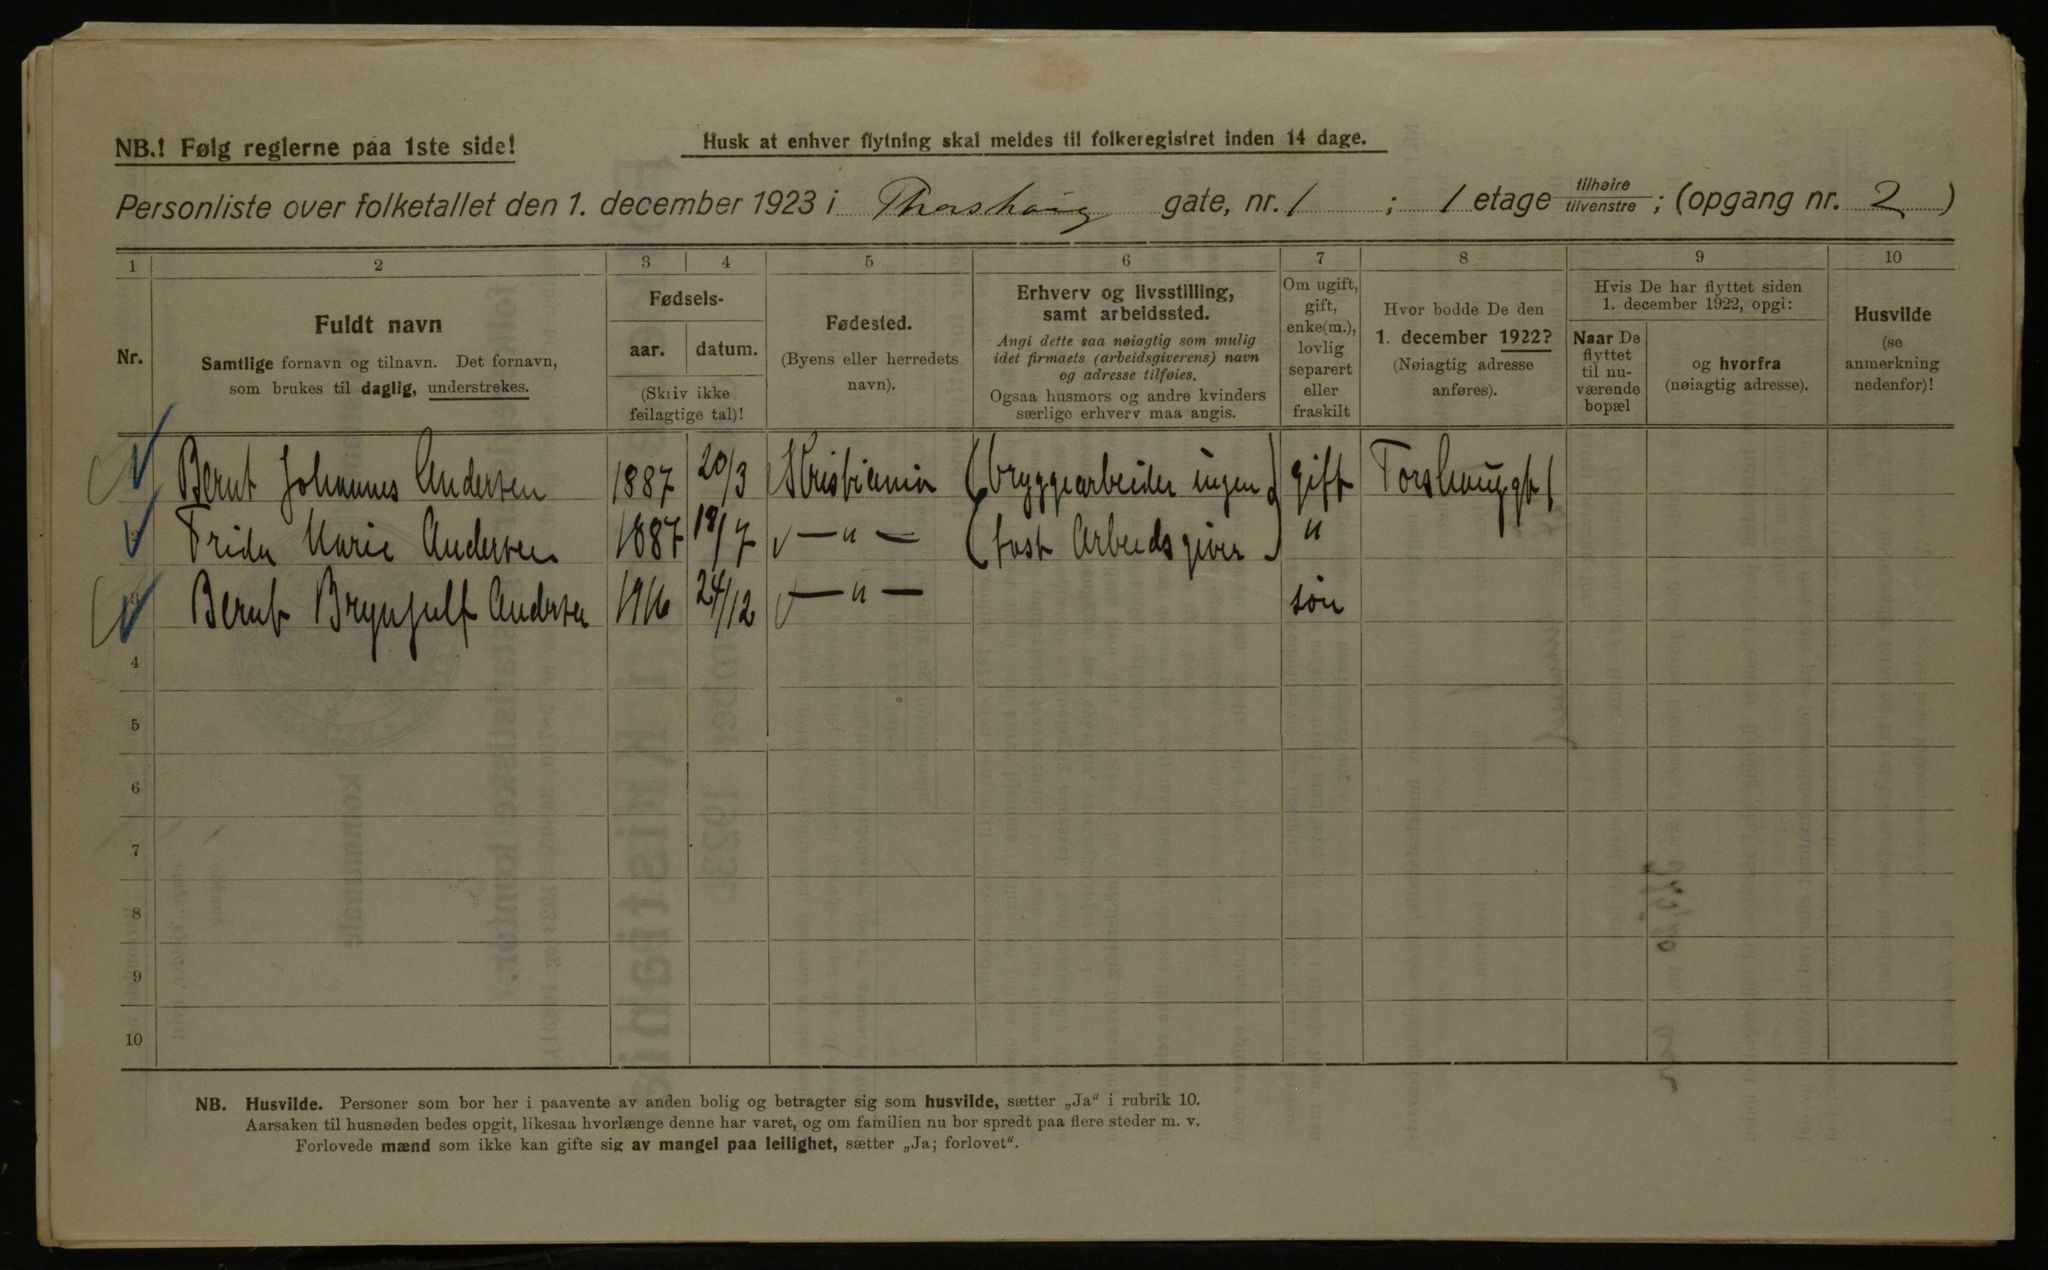 NB.! Følg reglerne paa 1ste side!
Husk at enhver flytning skal meldes til folkeregistret inden 14 dage.
Personliste over folketallet den 1. december 1923 i Thorshaug gate, nr. 1 ; 1 etage tilhøire tilvenstre ; (opgang nr. 2 )
1 2 3 4 5 6 7 8 9 10
Nr.
Fuldt navn
Samtlige fornavn og tilnavn. Det fornavn,
som brukes til daglig, understrekes.
Fødsels-
aar. datum.
(Skriv ikke
feilagtige tal)!
Fødested.
(Byens eller herredets
navn).
Erhverv og livsstilling,
samt arbeidssted.
Angi dette saa nøiagtig som mulig
idet firmaets (arbeidsgiverens) navn
og adresse tilføies.
Ogsaa husmors og andre kvinders
særlige erhverv maa angis.
Om ugift,
gift,
enke(m.),
lovlig
separert
eller
fraskilt
Hvor bodde De den
1. december 1922?
(Nøiagtig adresse
anføres).
Hvis De har flyttet siden
1. december 1922, opgi:
Naar De
flyttet
til nu-
værende
bopæl
og hvorfra
(nøiagtig adresse).
Husvilde
(se
anmerkning
nedenfor)!
Bernt Johannes Andersen 1887 20/3 Kristiania (bryggearbeider ingen) gift Torshauggt 1
Frida Marie Andersen 1887 18/7 — „ — (fast Arbeidsgiver) „
Bernt Brynjulf Andersen 1916 24/12 — „ — søn
4
5
6
7
8
9
10
NB. Husvilde. Personer som bor her i paavente av anden bolig og betragter sig som husvilde, sætter „Ja“ i rubrik 10.
Aarsaken til husnøden bedes opgit, likesaa hvorlænge denne har varet, og om familien nu bor spredt paa flere steder m. v.
Forlovede mænd som ikke kan gifte sig av mangel paa leilighet, sætter „Ja; forlovet“.